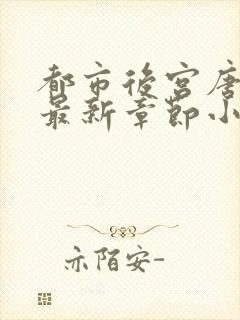 都市後宮唐
最新章節小
亦陌安-